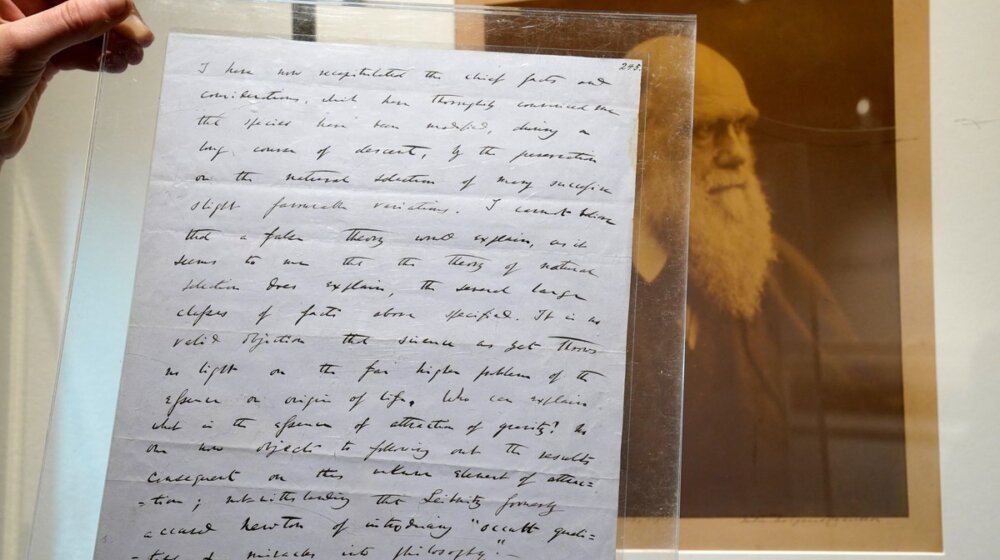 243.
I have now recapitulated the chief facts and
considerations, which have thoroughly convinced me
that species have been modified, during a
long course of descent, by the preservation
or the natural selection of many successive
slight favourable variations. I cannot believe
that a false theory would explain, as it
seems to me that the theory of natural
selection does explain, the several large
classes of facts above specified. It is no
valid objection that science as yet throws
no light on the far higher problem of the
essence or origin of life. Who can explain
what is the essence of attraction of gravity? No
one now objects to following out the results
consequent on this unknown element of attrac=
=tion; notwithstanding that Leibnitz formerly
accused Newton of introducing "occult quali=
=ties & miracles into philosophy."—